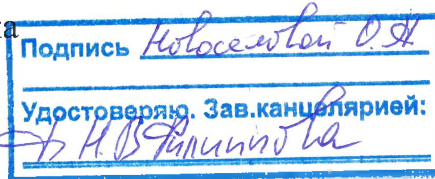 ка
Подпись Новоселовой О.Я
Удостоверяю. Зав.канцелярией:
Н.В Филиппова